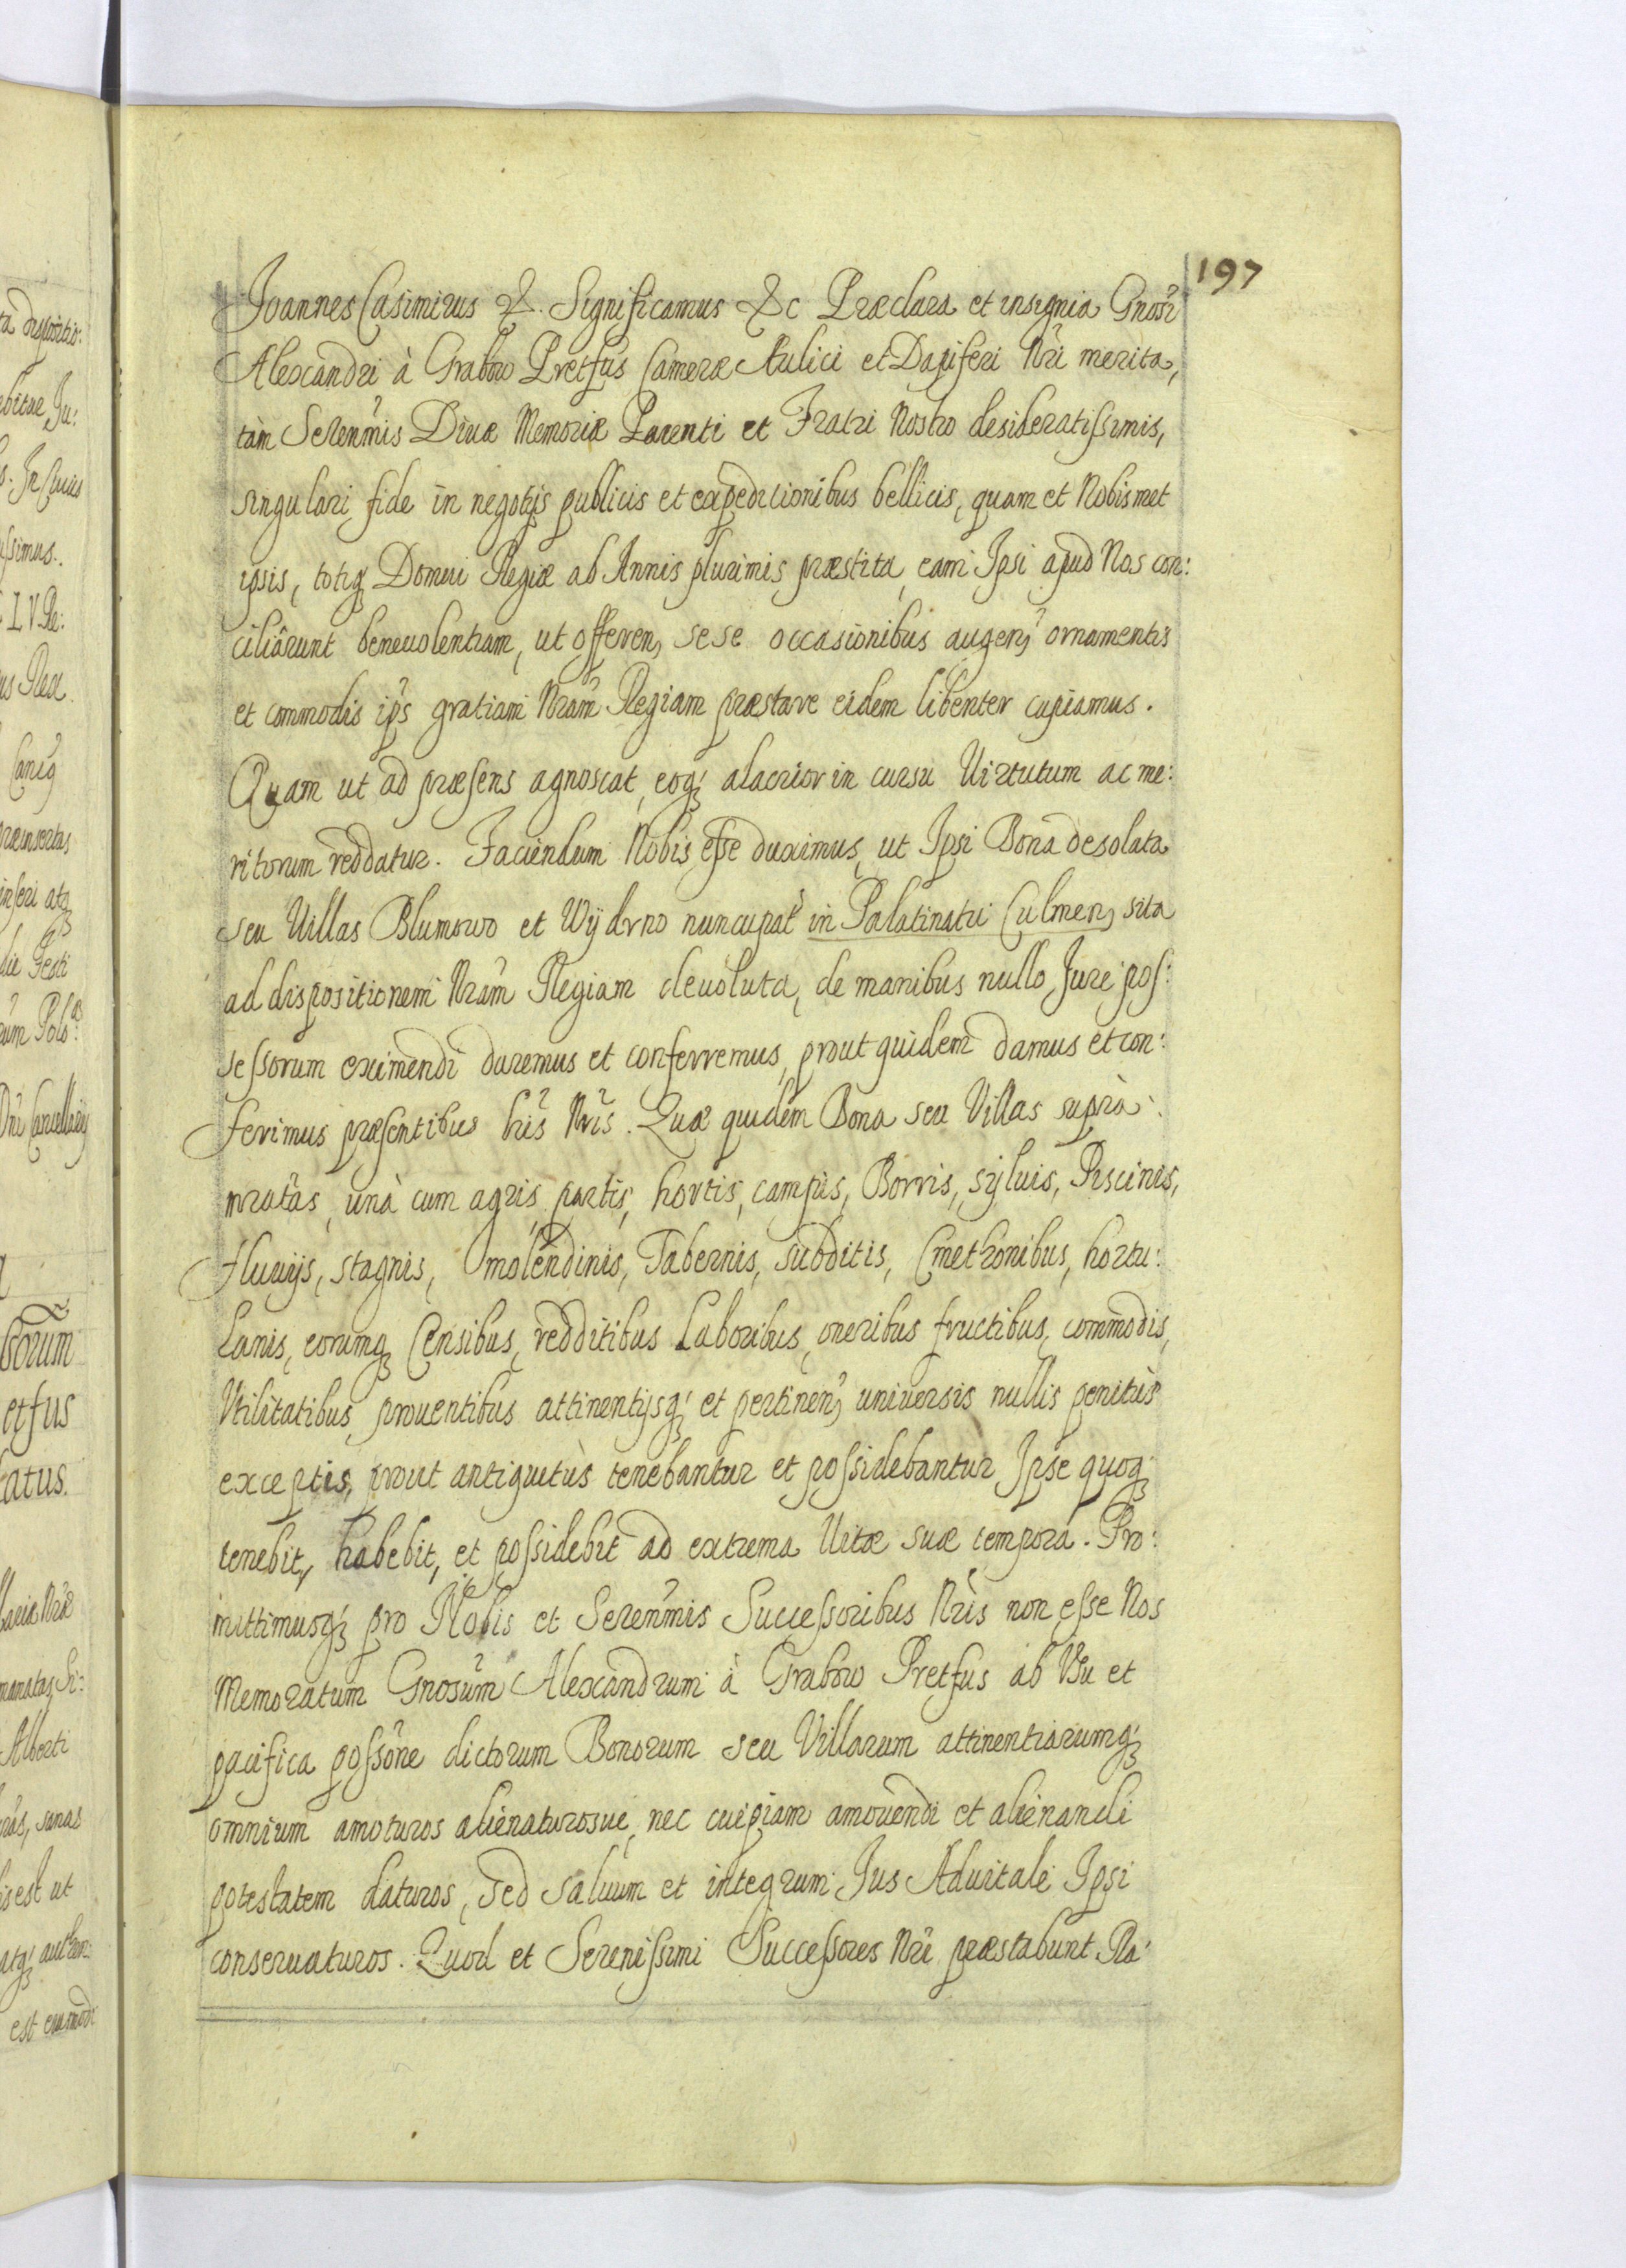 197
Joannes Casimirus &. Significamus &c Præclara et insignia Gnosi
Alexandri à Grabow Pretfus Cameræ Aulici et Dapiferi Nri merita,
tàm Serenmis Diuæ Memoriæ Parenti et Fratri Nostro desideratissimis,
singulari fide in negotijs publicis et expeditionibus bellicis, quam et Nobismet
ipsis, totiq; Domui Regiæ ab Annis plurimis præstita, eam Ipsi apud Nos con:
ciliârunt beneuolentiam, ut offeren, sese occasionibus augen, ornamentis
et commodis ips gratiam Nram Regiam præstare eidem libenter cupiamus.
Quam ut ad præsens agnoscat, eoq; alacrior in cursu Uirtutum ac me:
ritorum reddatur. Faciendum Nobis esse duximus, ut Ipsi Bona desolata
seu Uillas Blumowo et Wÿdrno nuncupat in Palatinatu Culmen, sita
ad dispositionem Nram Regiam deuoluta, de manibus nullo Jure pos:
sessorum eximendi daremus et conferremus, prout quidem damus et con:
ferimus præsentibus lris Nris. Quæ quidem Bona seu Villas suprà:
mratas, unà cum agris, partis, hortis, campis, Borris, syluis, Piscinis,
fluuijs, stagnis, molendinis, Tabernis, subditis, Cmethonibus, hortu:
lanis, eorumq; Censibus, redditibus Laboribus, oneribus fructibus, commodis,
Vtilitatibus prouentibus attinentijsq; et pertinen, uniuersis nullis penitùs
exceptis, prout antiquitùs tenebantur et possidebantur Ipse quoq;
tenebit, habebit, et possidebit ad extrema Uitæ suæ tempora. Pro:
mittimusq; pro Nobis et Serenmis Successoribus Nris non esse Nos
Memoratum Gnosum Alexandrum à Grabow Pretfus ab Vsu et
pacifica possone dictorum Bonorum seu Villarum attinentiarumq;
omnium amoturos alienaturosue, nec cuipiam amouendi et alienandi
potestatem daturos, sed saluum et integrum Jus Aduitale Ipsi
conseruaturos. Quod et Serenissimi Successores Nri præstabunt. Ra: